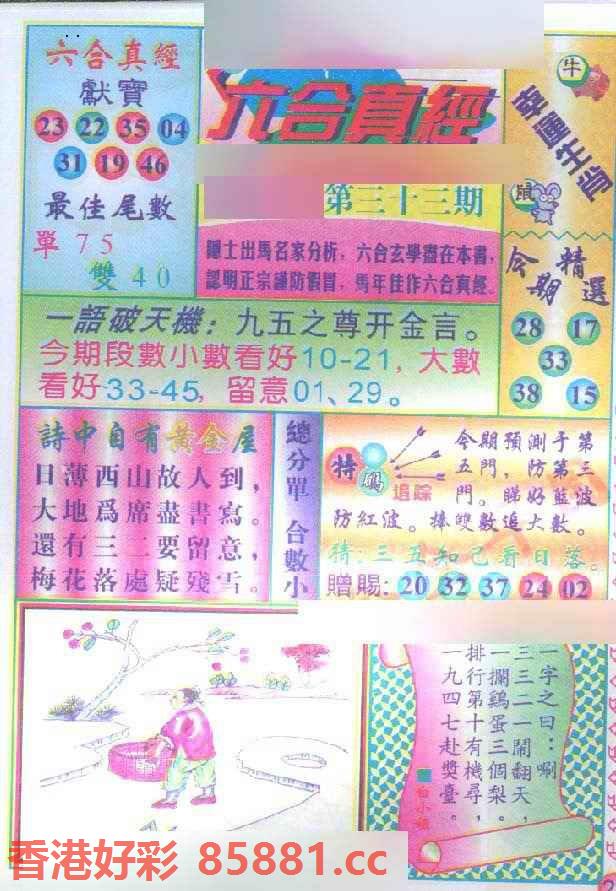 六合真經
獻寶
23 22 35 04
31 19 46
最佳尾數
單 7 5
雙 4 0
六合真經
第三十三期
隱士出馬名家分析，六合玄學盡在本書，
認明正宗謹防假冒，馬年佳作六合真經。
牛
幸運生肖
鼠
今期精選
28 17
33
38 15
一語破天機：九五之尊开金言。
今期段數小數看好10-21，大數
看好33-45，留意01、29。
詩中自有黃金屋
日薄西山故人到，
大地爲席盡書寫。
還有三二要留意，
梅花落處疑殘雪。
總分單 合數小
特碼
追踪
今期預測于第
五門，防第三
門。睇好藍波
防紅波。捧雙數追大數。
猜：三五知己看日落。
贈賜：20 32 37 24 02
一字之曰：唰
三三二一鬧翻天，
一擱鷄蛋三個梨。
排行第十有機尋，
一九四七赴獎臺。
白小姐
香港好彩 85881.cc